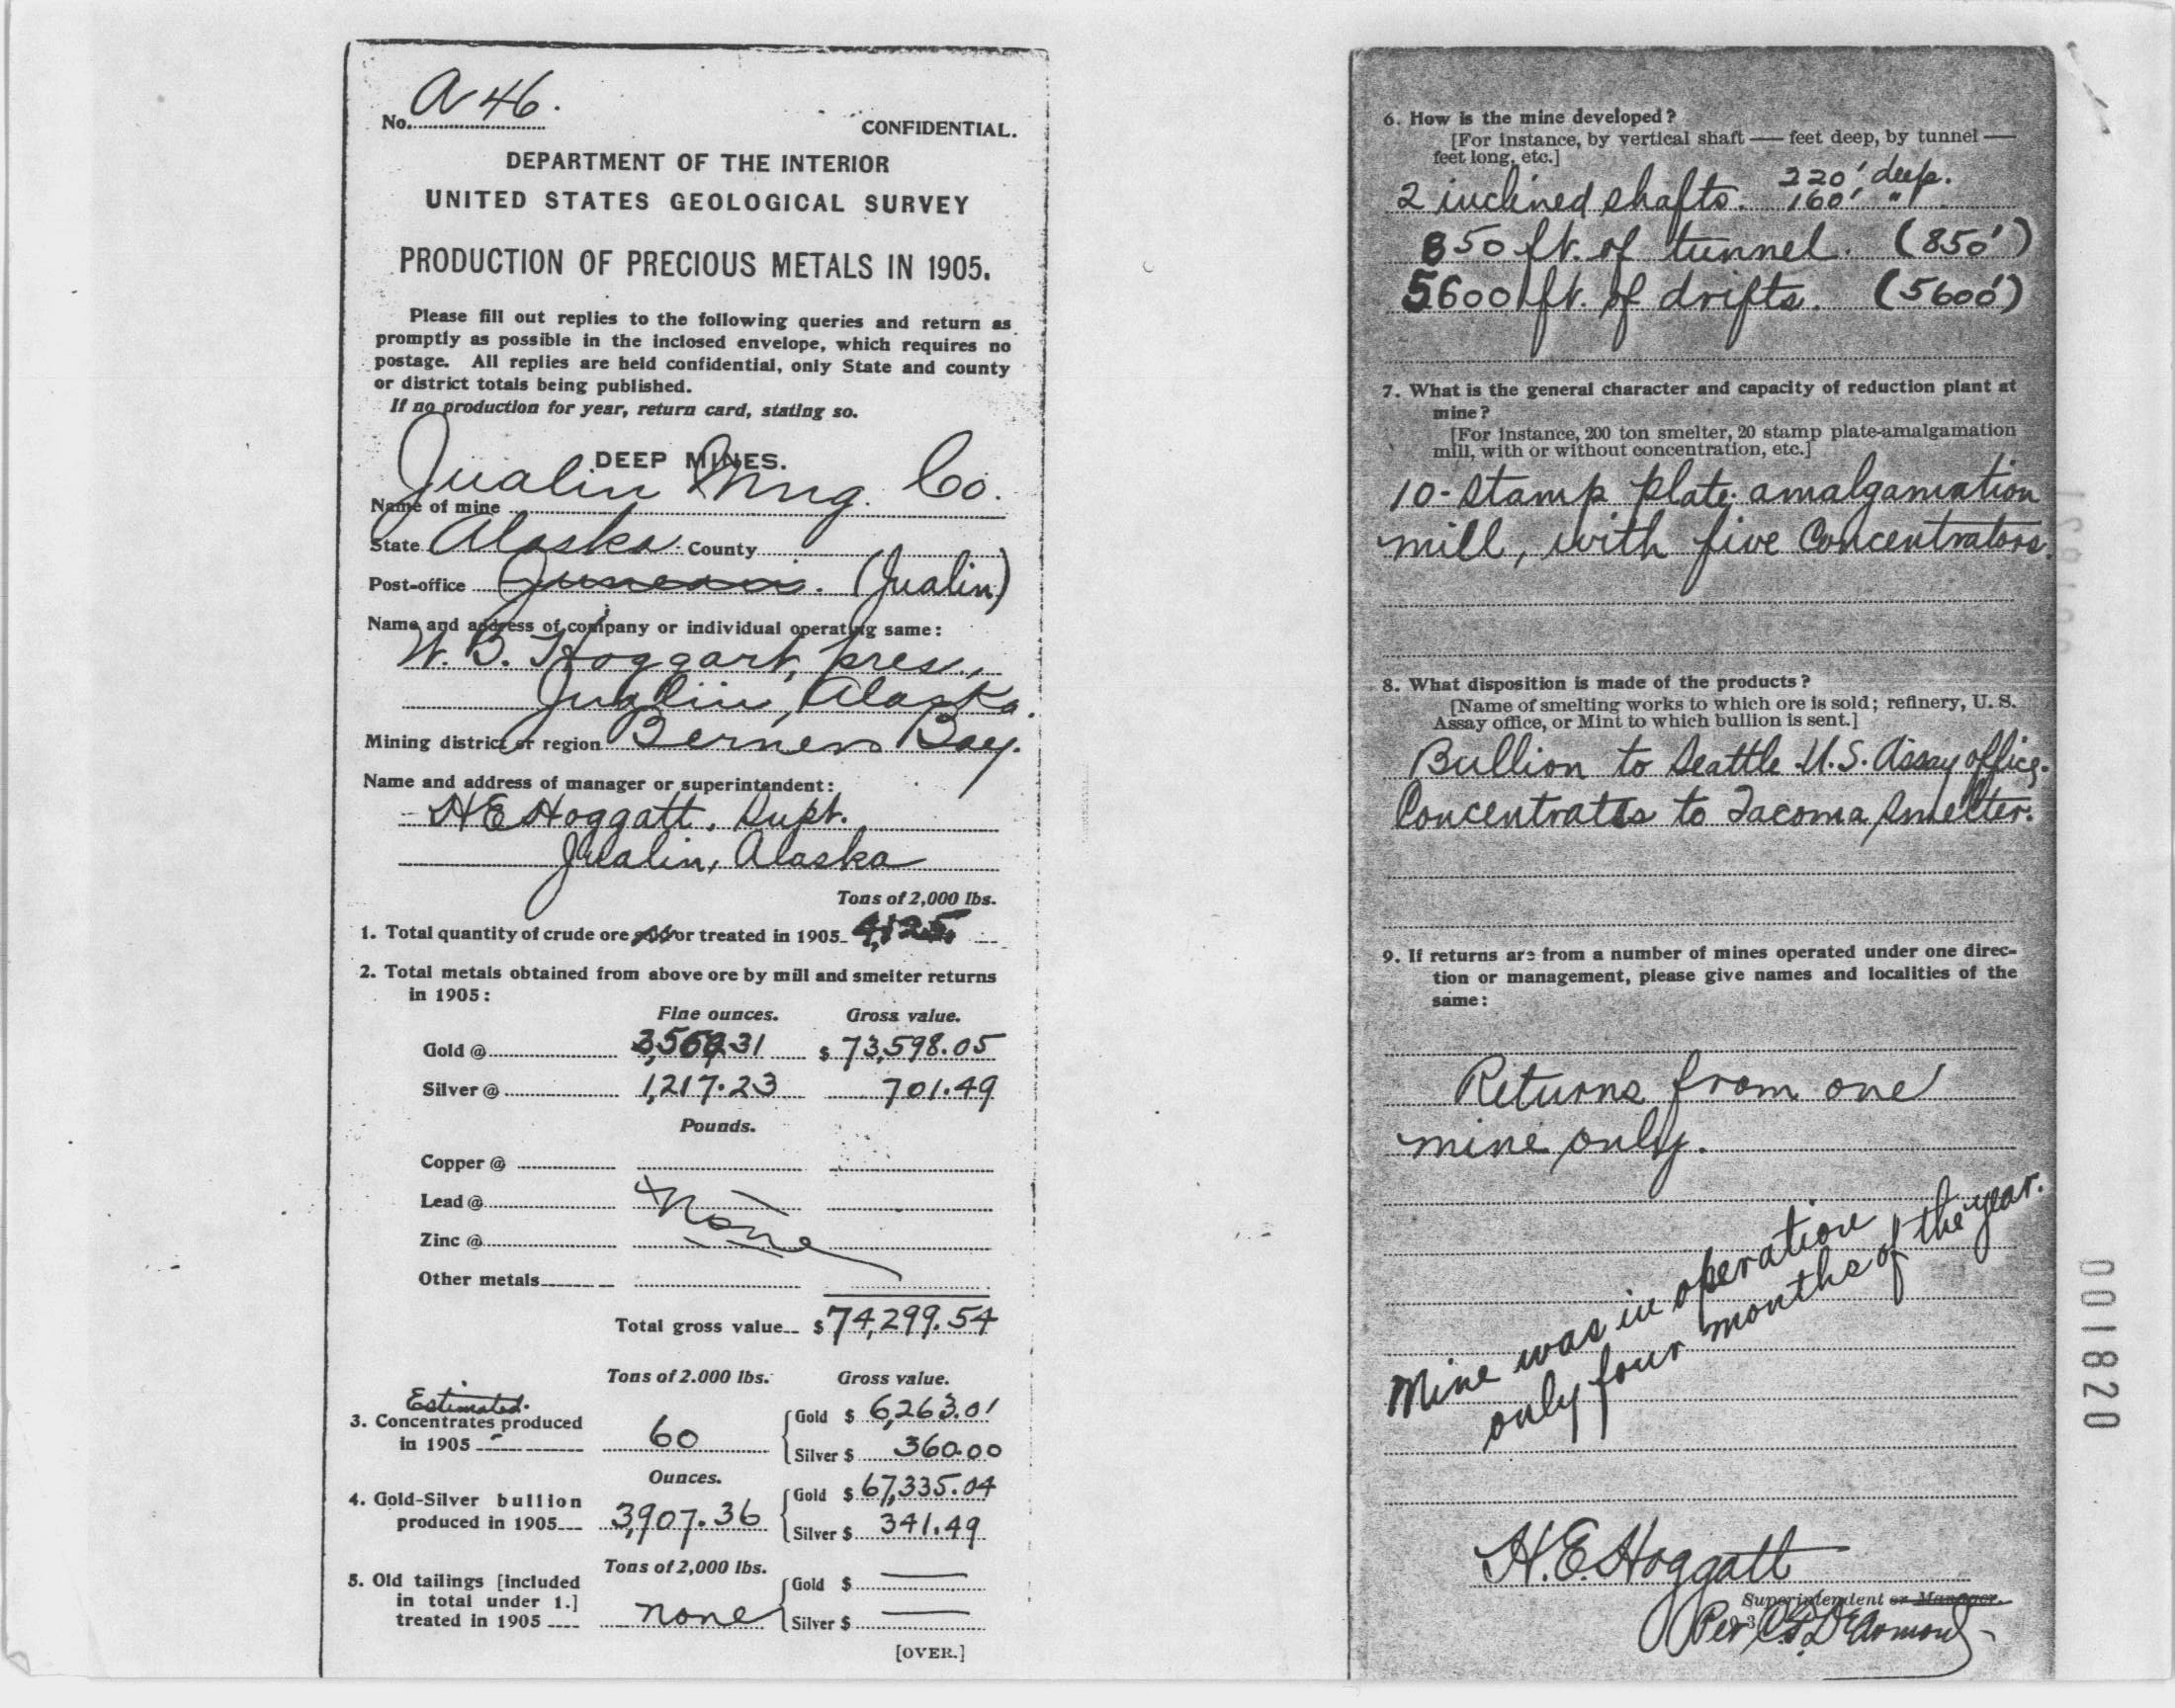 No. A 46.
CONFIDENTIAL.
DEPARTMENT OF THE INTERIOR
UNITED STATES GEOLOGICAL SURVEY
PRODUCTION OF PRECIOUS METALS IN 1905.
Please fill out replies to the following queries and return as
promptly as possible in the inclosed envelope, which requires no
postage. All replies are held confidential, only State and county
or district totals being published.
If no production for year, return card, stating so.
DEEP MINES.
Name of mine Jualin Mng. Co.
State Alaska. County
Post-office Juneau. (Jualin)
Name and address of company or individual operating same:
W. B. Hoggart, pres.,
Jualin, Alaska.
Mining district or region Berners Bay.
Name and address of manager or superintendent:
H E Hoggatt, Supt.
Jualin, Alaska
Tons of 2,000 lbs.
1. Total quantity of crude ore sold or treated in 1905 4,125
2. Total metals obtained from above ore by mill and smelter returns
in 1905:
Fine ounces. Gross value.
Gold @ $ 73,598.05
Silver @ 1,217.23 701.49
Pounds.
Copper @
Lead @ None
Zinc @
Other metals
Total gross value $ 74,299.54
Tons of 2.000 lbs. Gross value.
Estimated.
3. Concentrates produced
in 1905 60 Gold $ 6,263.01
Silver $ 360.00
Ounces.
4. Gold-Silver bullion
produced in 1905 3,907.36 Gold $ 67,335.04
Silver $ 341.49
Tons of 2,000 lbs.
5. Old tailings [included
in total under 1.]
treated in 1905 none Gold $ —
Silver $ —
[OVER.]
6. How is the mine developed?
[For instance, by vertical shaft — feet deep, by tunnel —
feet long, etc.]
2 inclined shafts. 220' deep.
160' "
850 ft. of tunnel. (850')
5600 ft. of drifts. (5600')
7. What is the general character and capacity of reduction plant at
mine?
[For instance, 200 ton smelter, 20 stamp plate-amalgamation
mill, with or without concentration, etc.]
10-stamp plate amalgamation
mill, with five Concentrators.
8. What disposition is made of the products?
[Name of smelting works to which ore is sold; refinery, U. S.
Assay office, or Mint to which bullion is sent.]
Bullion to Seattle U.S. Assay office.
Concentrates to Tacoma smelter.
9. If returns are from a number of mines operated under one direc-
tion or management, please give names and localities of the
same:
Returns from one
mine only.
Mine was in operation
only four months of the year.
H. E. Hoggatt
Superintendent or Manager.
Per
001820